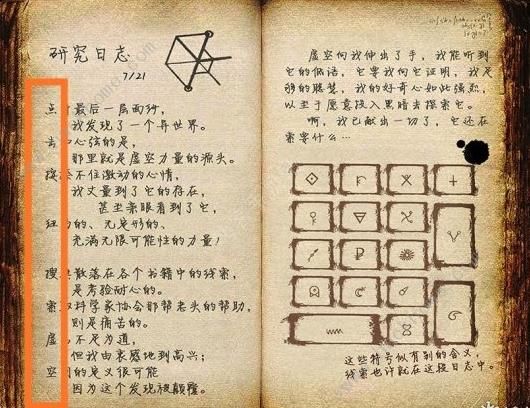 研究日志
7/21
点 最后一层面纱，
我发现了一个异世界。
击 心弦的是，
那里就是虚空力量的源头。
按 不住激动的心情，
我丈量到了它的存在，
甚至亲眼看到了它，
狂 的、无定形的、
充满无限可能性的力量！
搜 散落在各个书籍中的线索，
是考验耐心的。
索 科学家协会那帮老头的帮助，
则是痛苦的。
虚 不足为道，
但我由衷感地到高兴；
空 的定义很可能
因为这个发现被颠覆。
虚空向我伸出了手，我能听到
它的低语，它要我向它证明，我足
够的聪慧，我的好奇心如此强烈，
以至于愿意投入黑暗去探索它。
啊，我已献出一切了，它还在
索要什么…
这些符号似有别的含义，
线索也许就在这段日志中。